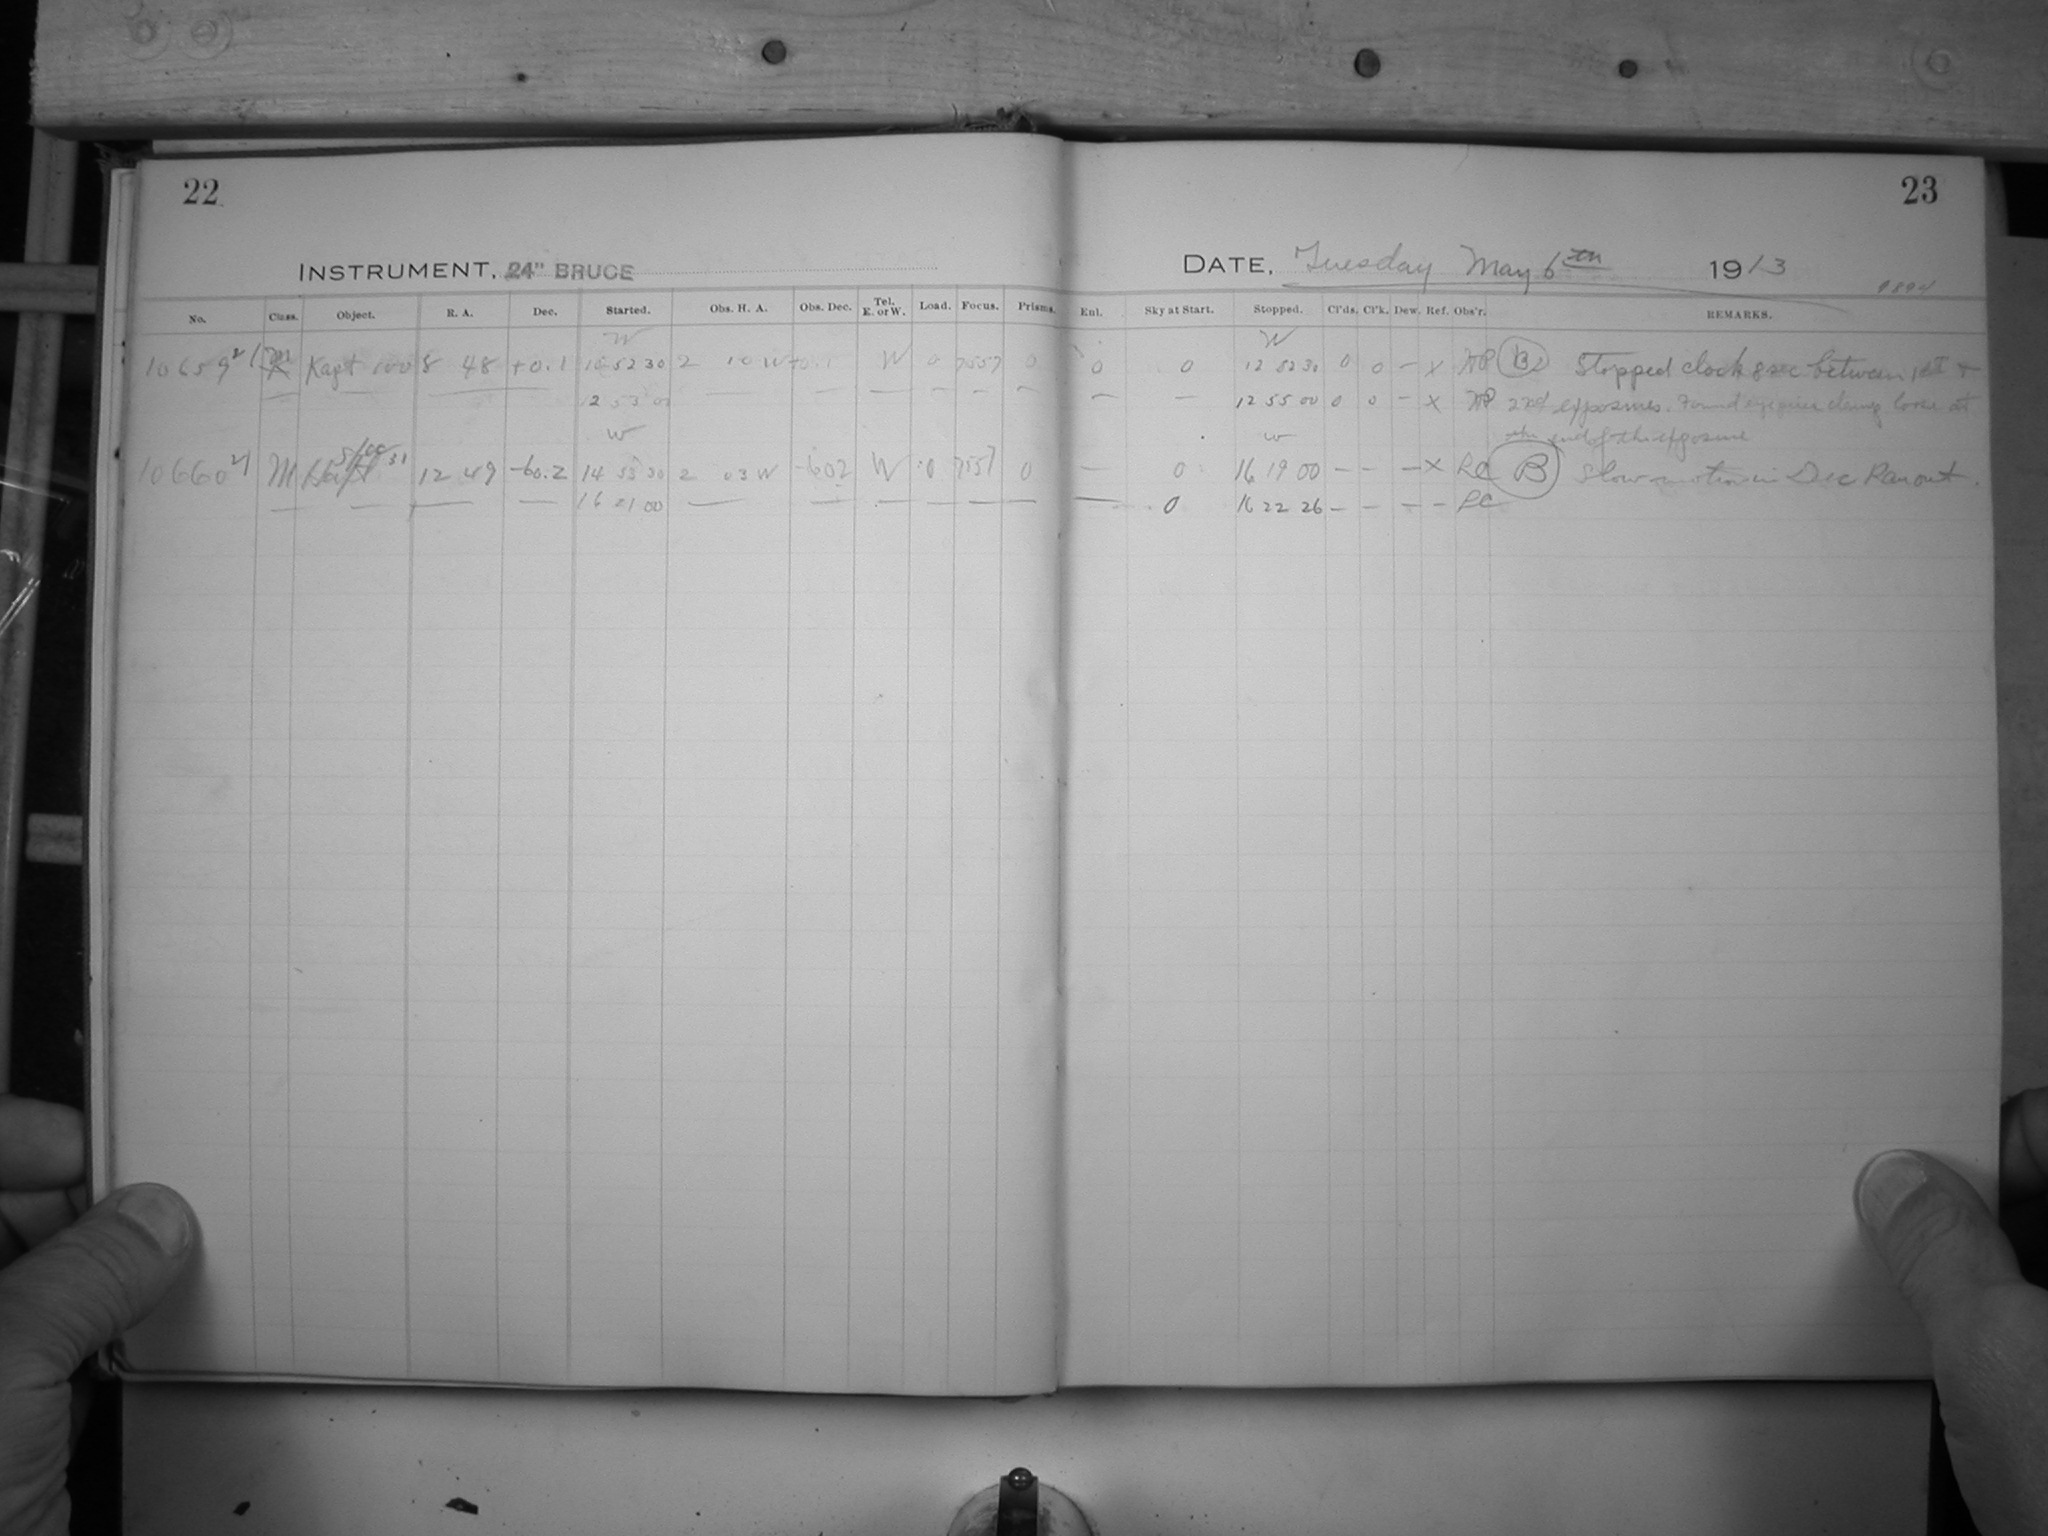 22
23
INSTRUMENT, 24" BRUCE
DATE, Tuesday May 6th 1913
No. Class. Object. R. A. Dec. Started. Obs. H. A. Obs. Dec. Tel. E. or W. Load. Focus. Prisms. Enl. Sky at Start. Stopped. Cl'ds. Cl'k. Dew. Ref. Obs'r. REMARKS.
W W
10659 Kapt 100 8 48 +0.1 10 52 30 2 10 W +0.1 W 0 0 0 0 12 52 30 0 0 – x B Stopped clock 8 sec between 1st &
— — — — 12 53 00 — — — — — — — — 12 55 00 0 0 – x 2nd exposures. Found eyepiece clamp loose at
W W the end of the exposure
10660 M 12 49 -60.2 14 53 30 2 03 W -60.2 W 0 0 — 0 16 19 00 – – – x RC B Slow motion in Dec Ran out.
— — — — 16 21 00 — — — — — — — 0 16 22 26 – – – – RC